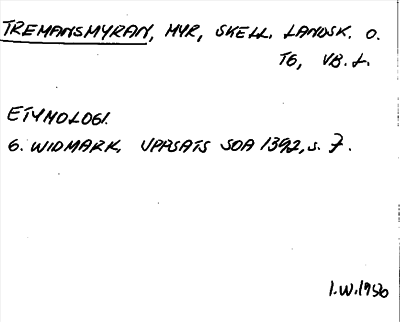 TREMANSMYRAN, MYR, SKELL. LANDSK. O.
TG, VB. L.
ETYMOLOGI.
G. WIDMARK, UPPSATS SOA 1392, S. 7.
I.W. 1956